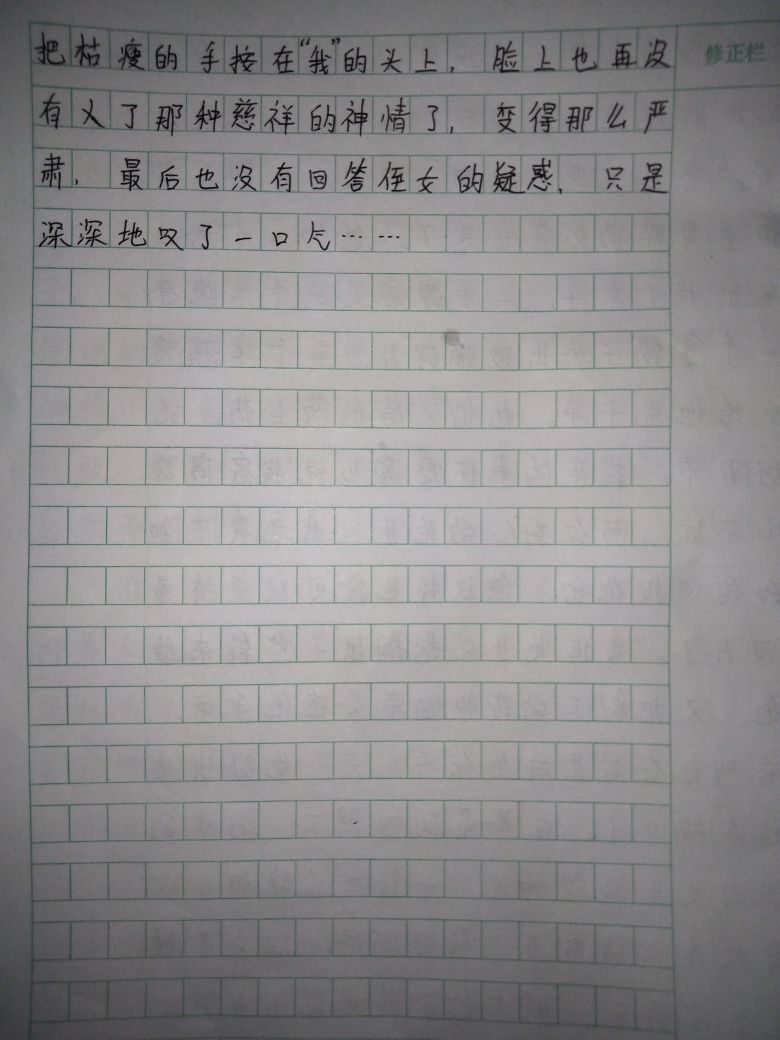 把枯瘦的手按在“我”的头上，脸上也再没 修正栏
有乂了那种慈祥的神情了，变得那么严
肃，最后也没有回答侄女的疑惑，只是
深深地叹了一口气……